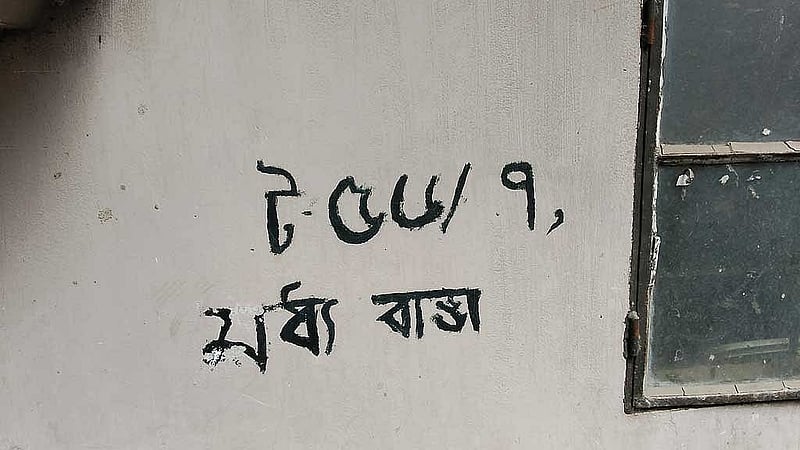 ট-৫৬/৭,
মধ্য বাড্ডা